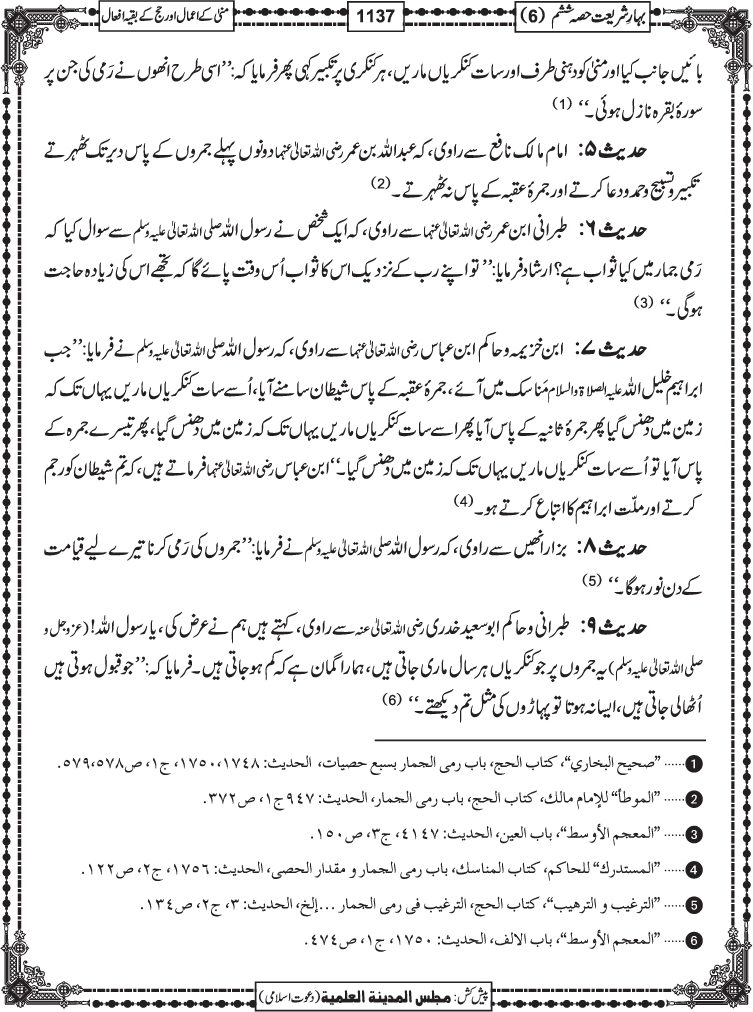 بہارِ شریعت حصہ ششم (6)
1137
منیٰ کے اعمال اور حج کے بقیہ افعال
بائیں جانب کیا اور منیٰ کو دہنی طرف اور سات کنکریاں ماریں، ہر کنکری پر تکبیر کہی پھر فرمایا کہ: ’’اسی طرح انھوں نے رَمی کی جن پر
سورۂ بقرہ نازل ہوئی۔‘‘ (1)
حدیث ۵: امام مالک نافع سے راوی، کہ عبداللہ بن عمر رضی اللہ تعالیٰ عنہما دونوں پہلے جمروں کے پاس دیر تک ٹھہرتے
تکبیر و تسبیح و حمد و دعا کرتے اور جمرۂ عقبہ کے پاس نہ ٹھہرتے۔ (2)
حدیث ۶: طبرانی ابن عمر رضی اللہ تعالیٰ عنہما سے راوی، کہ ایک شخص نے رسول اللہ صلی اللہ تعالیٰ علیہ وسلم سے سوال کیا کہ
رَمی جمار میں کیا ثواب ہے؟ ارشاد فرمایا: ’’تو اپنے رب کے نزدیک اس کا ثواب اُس وقت پائے گا کہ تجھے اس کی زیادہ حاجت
ہوگی۔‘‘ (3)
حدیث ۷: ابن خزیمہ و حاکم ابن عباس رضی اللہ تعالیٰ عنہما سے راوی، کہ رسول اللہ صلی اللہ تعالیٰ علیہ وسلم نے فرمایا: ’’جب
ابراہیم خلیل اللہ علیہ الصلاۃ والسلام مَناسک میں آئے، جمرۂ عقبہ کے پاس شیطان سامنے آیا، اُسے سات کنکریاں ماریں یہاں تک کہ
زمین میں دھنس گیا پھر جمرۂ ثانیہ کے پاس آیا پھر اسے سات کنکریاں ماریں یہاں تک کہ زمین میں دھنس گیا، پھر تیسرے جمرہ کے
پاس آیا تو اُسے سات کنکریاں ماریں یہاں تک کہ زمین میں دھنس گیا۔‘‘ ابن عباس رضی اللہ تعالیٰ عنہما فرماتے ہیں، کہ تم شیطان کو رجم
کرتے اور ملّت ابراہیم کا اتباع کرتے ہو۔ (4)
حدیث ۸: بزار انھیں سے راوی، کہ رسول اللہ صلی اللہ تعالیٰ علیہ وسلم نے فرمایا: ’’جمروں کی رَمی کرنا تیرے لیے قیامت
کے دن نور ہوگا۔‘‘ (5)
حدیث ۹: طبرانی و حاکم ابوسعید خدری رضی اللہ تعالیٰ عنہ سے راوی، کہتے ہیں ہم نے عرض کی، یا رسول اللہ! (عزوجل و
صلی اللہ تعالیٰ علیہ وسلم) یہ جمروں پر جو کنکریاں ہر سال ماری جاتی ہیں، ہمارا گمان ہے کہ کم ہو جاتی ہیں۔ فرمایا کہ: ’’جو قبول ہوتی ہیں
اُٹھا لی جاتی ہیں، ایسا نہ ہوتا تو پہاڑوں کی مثل تم دیکھتے۔‘‘ (6)
1 ...... ”صحيح البخاري“، كتاب الحج، باب رمى الجمار بسبع حصيات، الحديث: ١٧٤٨، ١٧٥٠، ج١، ص٥٧٨، ٥٧٩.
2 ...... ”الموطأ“ للإمام مالك، كتاب الحج، باب رمى الجمار، الحديث: ٩٤٧ ج١، ص٣٧٢.
3 ...... ”المعجم الأوسط“، باب العين، الحديث: ٤١٤٧، ج٣، ص١٥٠.
4 ...... ”المستدرك“ للحاكم، كتاب المناسك، باب رمى الجمار و مقدار الحصى، الحديث: ١٧٥٦، ج٢، ص١٢٢.
5 ...... ”الترغيب و الترهيب“، كتاب الحج، الترغيب فى رمى الجمار ...إلخ، الحديث: ٣، ج٢، ص١٣٤.
6 ...... ”المعجم الأوسط“، باب الالف، الحديث: ١٧٥٠، ج١، ص٤٧٤.
پیش کش: مجلس المدينة العلمية (دعوت اسلامی)